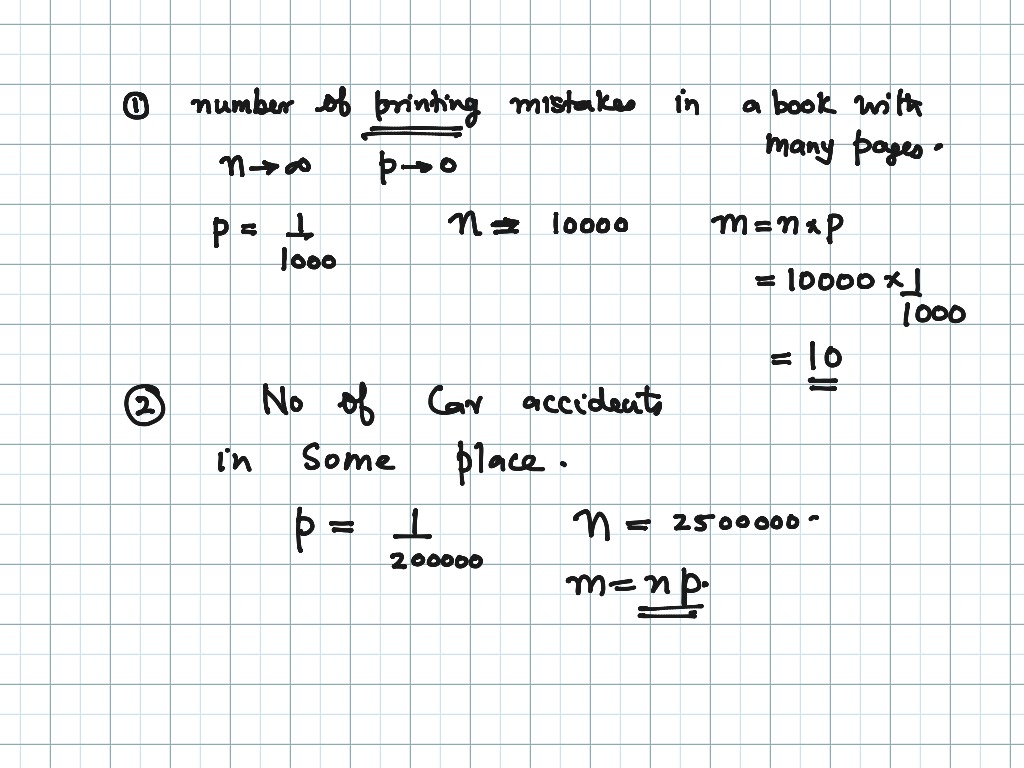 ① number of printing mistakes in a book with
many pages.
n→∞ p→0
p = 1/1000 n = 10000 m = n×p
= 10000 × 1/1000
= 10
② No of Car accidents
in Some place.
p = 1/200000 n = 2500000
m = np.